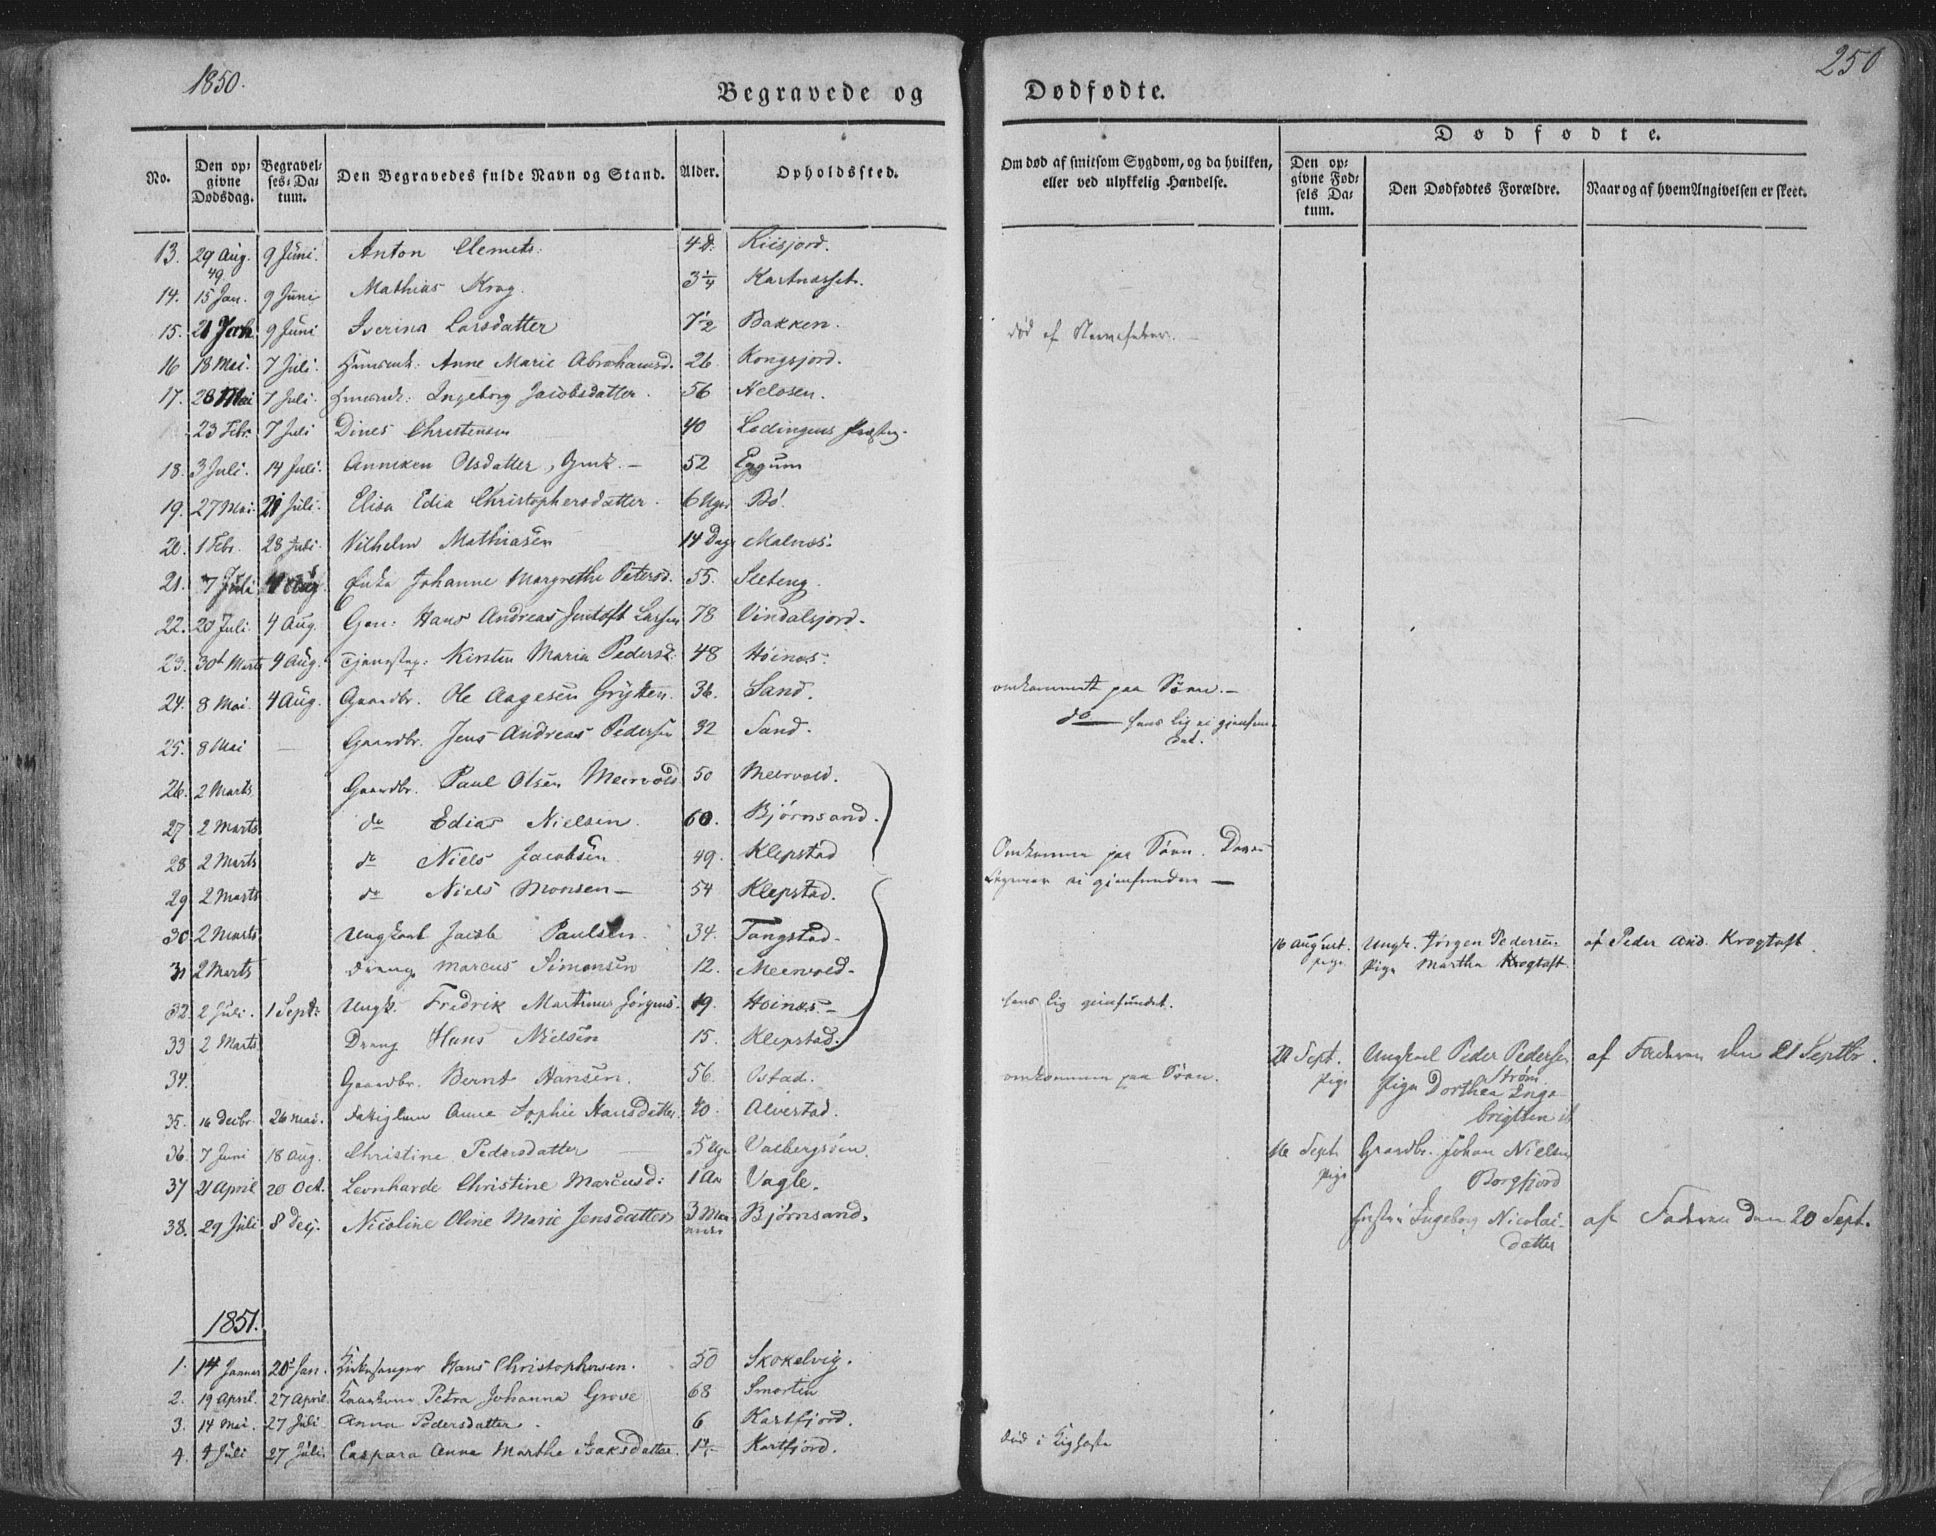 1850.
Begravede og
Dødfødte.
250
No.
Den opgivne Dødsdag.
Begravelses-Datum.
Den Begravedes fulde Navn og Stand.
Alder.
Opholdssted.
Om død af smitsom Sygdom, og da hvilken, eller ved ulykkelig Hændelse.
Dødfødte.
Den opgivne Fødsels Datum.
Den Dødfødtes Forældre.
Naar og af hvem Angivelsen er skeet.
13. 29 Aug. 49 9 Juni. Anton Clemets: 4 d.
14. 15 Jan. 9 Juni Mathias Krog. 3 1/4 Kartnæsset.
15. 9 Juni Iverina Larsdatter 7 1/2 Bakken. død af Nervefeber.
16 18 Mai. 7 Juli. Anne Marie Abrahamsd. 26 Kongsjord.
17. 28 Mai 7 Juli. Ingeborg Jacobsdatter. 56 Helosen.
23 Febr. 7 Juli Dines Christensen 40 Lodingens Præsteg.
18. 3 Juli. 14 Juli. Anniken Olsdatter, 52 Eggum
19. 27 Mai. 21 Juli. Elisa Edia Christophersdatter. 6 Uger Bø.
20. 1 Febr. 28 Juli. Vilhelm Mathiasen 14 Dage Malnæs.
21. 7 Juli 4 Aug. Enke Johanne Margrethe Petersd. 55. Sletteng.
22. 20 Juli. 4 Aug. Hans Andreas Jentoft Larsen 78 Vindalsjord.
23. 30t Marts 4 Aug. Kirsten Maria Pedersd: 48 Høinæs.
24. 8 Mai. 4 Aug. Gaardbr. Ole Aagesen Grytten. 36. Sand. omkommet paa Søen. —
25. 8 Mai — Gaardbr. Jens Andreas Pedersen 32 Sand. do — hans Lig ei gjenfundet.
26. 2 Marts Gaardbr. Paul Olsen Meervold 50 Meervold.
27 2 Marts do Edias Nielsen. 60. Bjørnsand.
28 2 Marts do Niels Jacobsen. 49. Klepstad Omkomne paa Søen. Deres
29 2 Marts do Niels Monsen — 54 Klepstad. Legemer ei gjenfundne —
30 2 Marts Ungkarl Jacob Paulsen. 34. Tangstad. 16 August. Pige Ungk. Jørgen Pedersen. af Peder And. Krogtoft
31 2 Marts Dreng Marcus Simonsen 12. Meervold. Pige Martha Krogtoft.
32. 2 Juli. 1 Sept: Ungk. Fredrik Martinus Jørgens. 19. Høinæs. — hans Lig gjenfundet.
33 2 Marts Dreng Hans Nielsen 15. Klepstad.
34. Gaardbr. Bernt Hansen. 56. Ostad. omkommen paa Søen. Sept. Pige Ungkarl Peder Pedersen Strøm af Faderen den 21 Septbr.
Pige Dorthea Ingebrigtsen
35. 16 Decbr. 26 Mai. Anne Sophie Hansdatter. 70. Alvestad.
36. 7 Juni 18 Aug. Christine Pedersdatter — 5 Uger Valbergsøen. 16 Sept. Pige Gaardbr. Johan Nielsen Borgfjord
37 21 April 20 Oct. Leonharde Christine Marcusd: 1 Aar Vagle.
38. 29 Juli 8 Dec. Nicoline Oline Marie Jensdatter 3 Maaneder Bjørnsand. Ingeborg Nicolaidatter af Faderen den 20 Sept.
1851.
1. 14 Januar 20 Jan. Kirkesanger Hans Christophersen. 50 Skokelvig.
2. 19 April. 27 April. Petra Johanna Grove 68 Smorten
3. 14 Mai. 27 Juli. Anna Pedersdatter. 6 Kartfjord.
4. 4 Juli 27 Juli. Caspara Anne Marthe Isaksdatter. Kartfjord. død i Kighoste